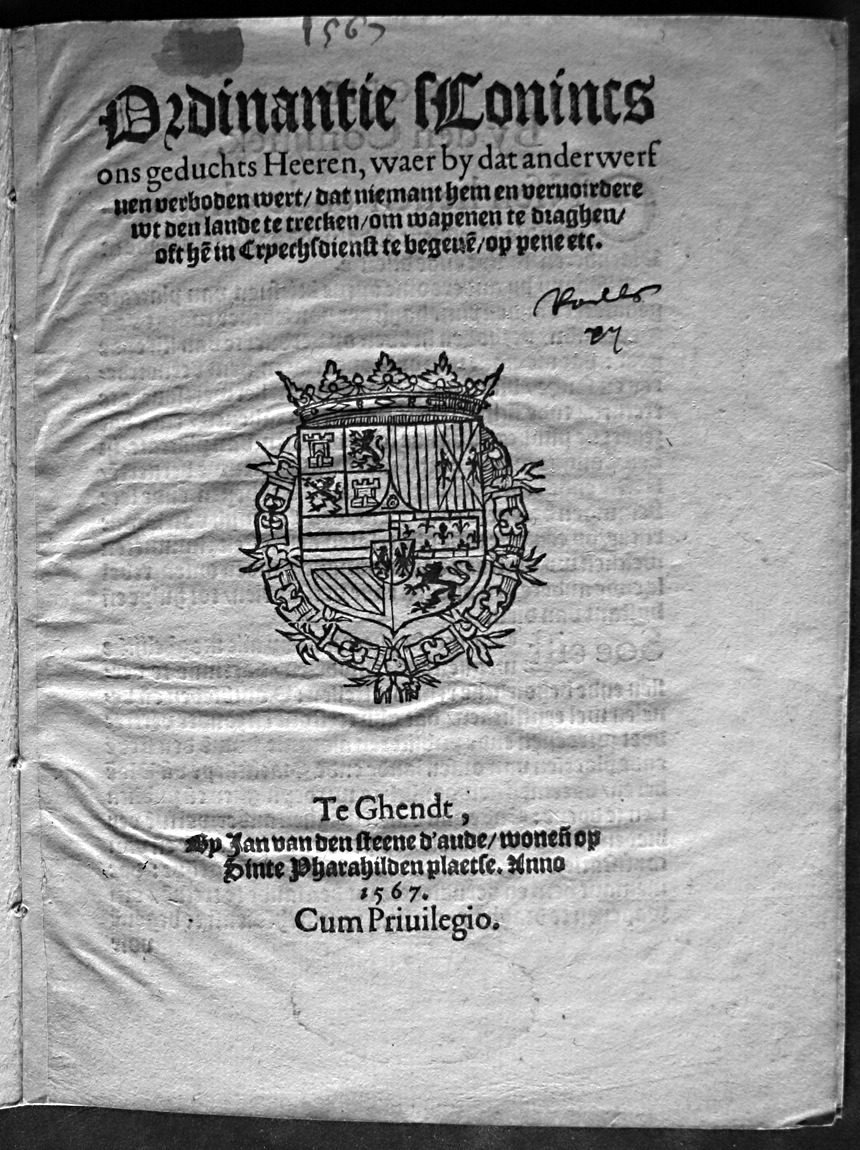 1567
Ordinantie sConincs
ons geduchts Heeren, waer by dat anderwerf
uen verboden wert/ dat niemant hem en veruoirdere
wt den lande te trecken/om wapenen te draghen/
oft hē in Crychsdienst te begeuē/op pene etc.
Te Ghendt,
By Jan van den steene d'aude/wonen̄ op
Sinte Pharahilden plaetse. Anno
1567.
Cum Priuilegio.